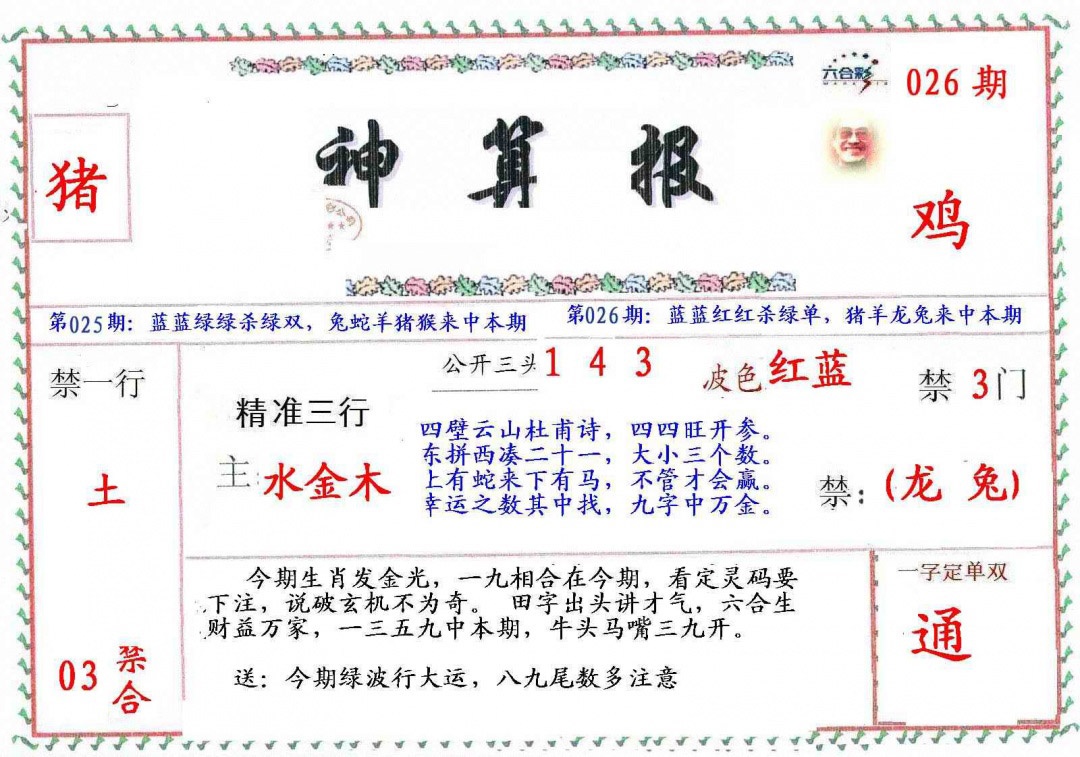 六合彩
026 期
神算报
猪
鸡
第025期：蓝蓝绿绿杀绿双，兔蛇羊猪猴来中本期
第026期：蓝蓝红红杀绿单，猪羊龙兔来中本期
禁一行
土
03 禁合
公开三头 1 4 3
波色 红蓝
禁 3门
精准三行
主：水金木
四壁云山杜甫诗，四四旺开参。
东拼西凑二十一，大小三个数。
上有蛇来下有马，不管才会赢。
幸运之数其中找，九字中万金。
禁：(龙 兔)
今期生肖发金光，一九相合在今期，看定灵码要
下注，说破玄机不为奇。 田字出头讲才气，六合生
财益万家，一三五九中本期，牛头马嘴三九开。
送：今期绿波行大运，八九尾数多注意
一字定单双
通